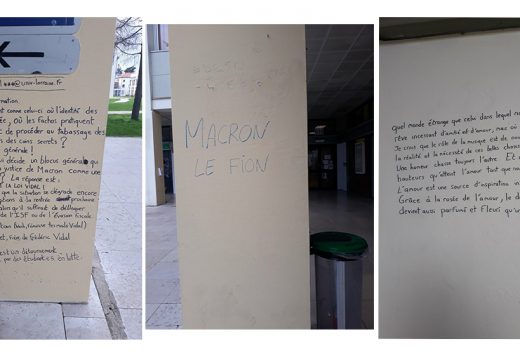 @univ-lorraine.fr
rmation
est comme celui-ci où l'identité des
ée, où les fachos pratiquent
t de procéder au tabassage des
des cours secrets ?
générale !
décide un blocus général qu
justice de Macron comme une
? La réponse est :
LA LOI VIDAL !
que la situation se dégrade encore
à la rentrée prochaine
qu'il suffirait de débloquer
de l'ISF ou de l'évasion fiscale
de Frédéric Vidal
est un détournement
par des étudiant.es en lutte
MACRON
LE FION
quel monde étrange que celui dans lequel no
rêve incessant d'amitié et d'amour, mais où
Je crois que le rôle de la musique est de nou
la réalité et la nécessité de ces belles choses
Une humeur chasse toujours l'autre. Et a
hauteurs qu'atteint l'amour tant que no
L'amour est une source d'inspiration vi
Grâce à la rosée de l'amour, le d
devient aussi parfumé et fleuri qu'u